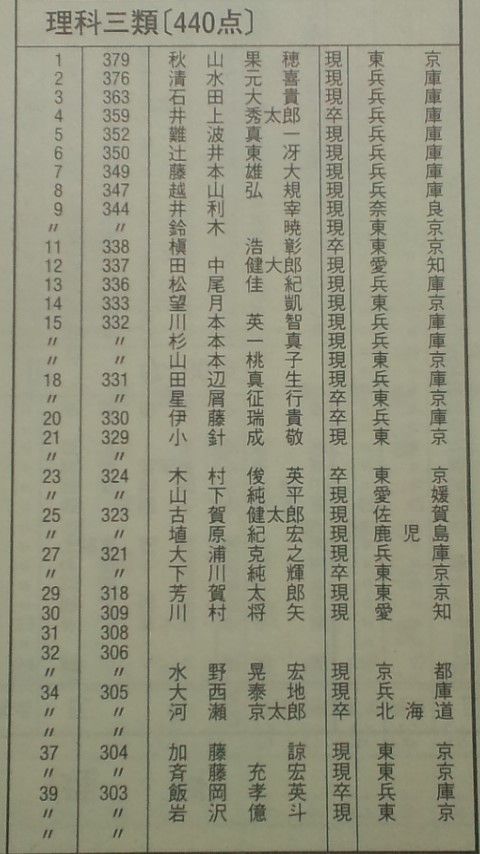 理科三類〔440点〕
1 379 秋山果穂 現 東京
2 376 清水元喜 現 兵庫
3 363 石田大貴 現 兵庫
4 359 井上秀太郎 卒 兵庫
5 352 難波真一 現 兵庫
6 350 辻井東冴 現 兵庫
7 349 藤本雄大 現 兵庫
8 347 越山弘規 現 兵庫
9 344 井利宰 現 奈良
〃 〃 鈴木暁 現 東京
11 338 槇浩彰 卒 東京
12 337 田中健大郎 現 愛知
13 336 松尾佳紀 現 兵庫
14 333 望月凱 現 東京
15 332 川本英智 現 兵庫
〃 〃 杉本一真 現 兵庫
〃 〃 山本桃子 現 東京
18 331 田辺真生 現 兵庫
〃 〃 星屑征行 卒 東京
20 330 伊藤瑞貴 卒 兵庫
21 329 小針成敬 現 東京
〃 〃
23 324 木村俊英 卒 東京
〃 〃 山下純平 現 愛媛
25 323 古賀健太郎 現 佐賀
〃 〃 埴原紀宏 現 鹿児島
27 321 大浦克之 現 兵庫
〃 〃 下川純輝 卒 東京
29 318 芳賀太郎 現 東京
30 309 川村将矢 現 愛知
31 308
32 306
〃 〃 水野晃宏 現 京都
34 305 大西泰地 現 兵庫
〃 〃 河瀬京太郎 卒 北海道
〃 〃
37 304 加藤諒 現 東京
〃 〃 斉藤充宏 現 東京
39 303 飯岡孝英 卒 兵庫
〃 〃 岩沢億斗 現 東京
〃 〃